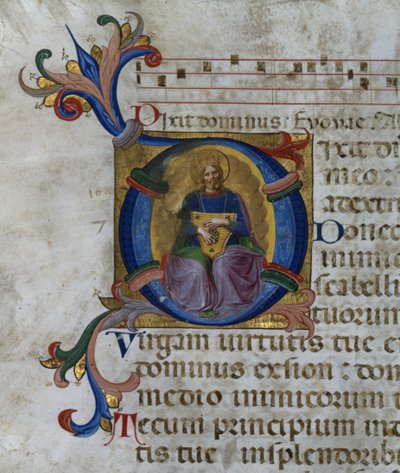 Dixit dominus : Euouae .
ixit do
meo :
adextri
Donec
inimic
scabellu
tuorum
Virgam uirtutis tue e
dominus exsion : dom
medio inimicorum t
Tecum principium in d
tis tue insplendorib